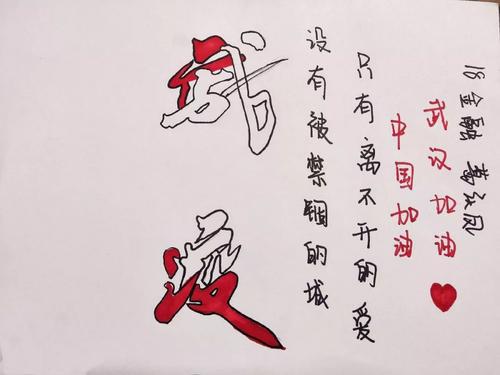 疫
没有被禁锢的城
只有离不开的爱
中国加油
武汉加油
18金融